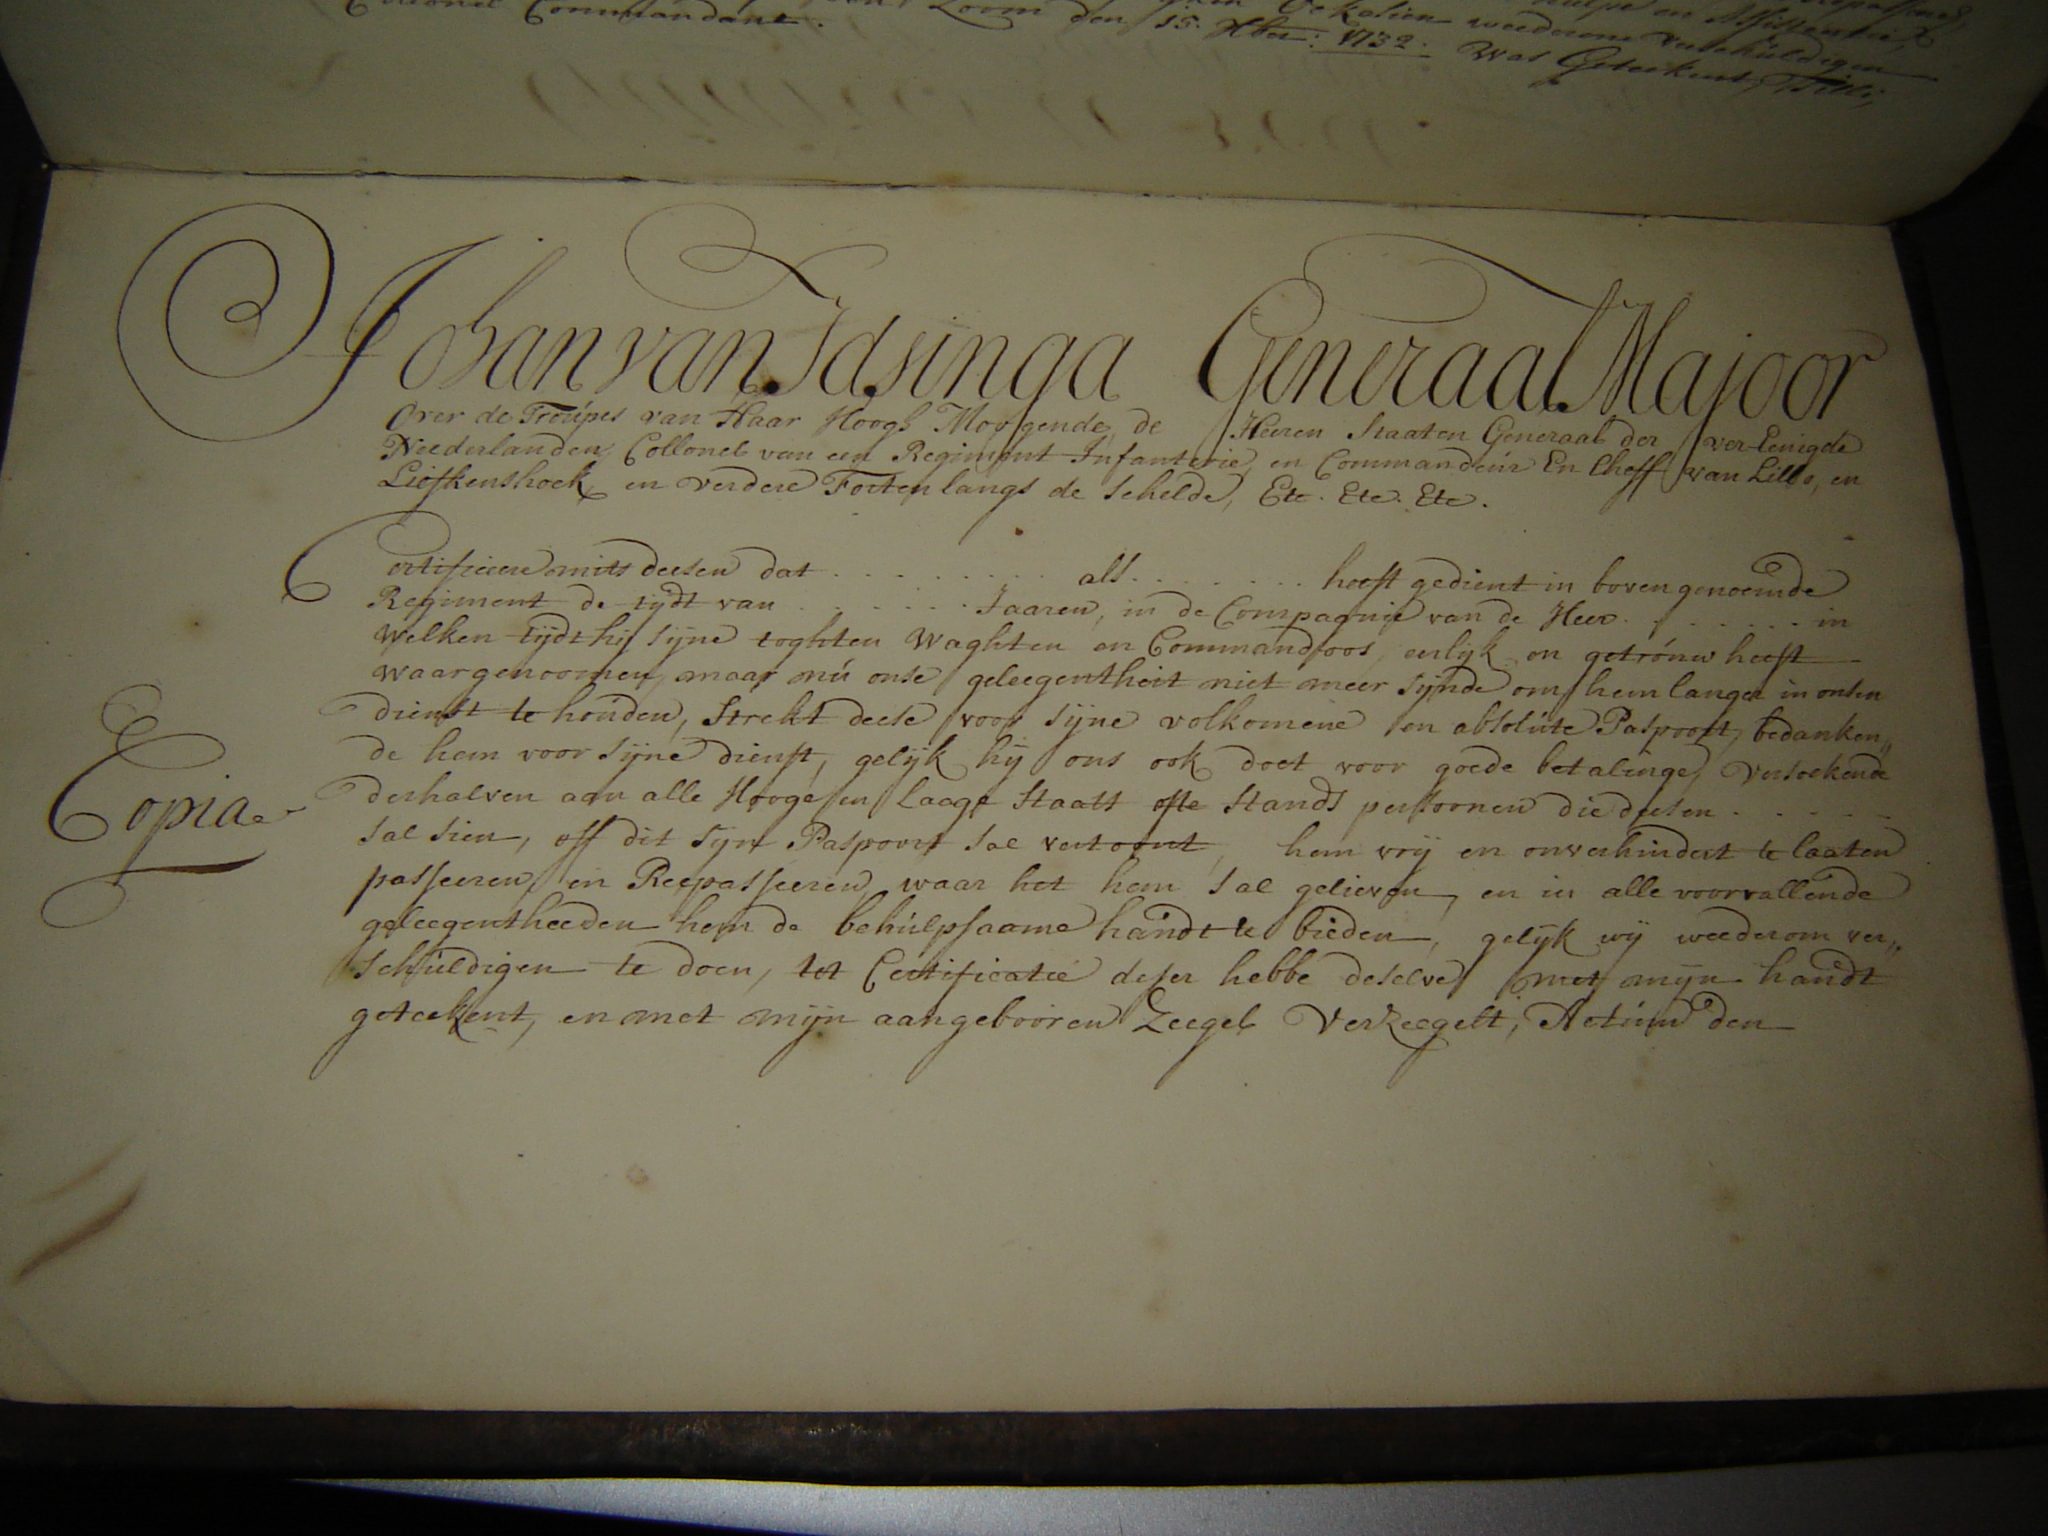 hulpe en Assistentie,
weederom verschuldigen
Collonel Commandant. Zoom den 15. Xber: 1732. Was Geteekent,
Johan van Idsinga Generaal Majoor
Over de Troupes van Haar Hoogh Moogende, de Heeren Staaten Generaal der ver-Eenigde
Neederlanden, Collonel van een Regiment Infanterie, en Commandeur En Cheff van Lillo, en
Liefkenshoek, en verdere Forten langs de Schelde, Etc. Etc. Etc.
Certificeere mits deesen dat . . . . . . . . . als . . . . . . . heeft gedient in bovengenoemde
Regiment de tijdt van . . . . . . . Jaaren, in de Compagnie van de Heer . . . . . . . in
welken tijdt hij sijne toghten Waghten en Commandoos, eerlijk en getrouw heeft
waargenoomen, maar nu onse geleegentheit niet meer sijnde om hem langer in onsen
dienst te houden, Strekt deese voor sijne volkomene en absolute Paspoort, bedanken„
de hem voor sijne dienst, gelijk hij ons ook doet voor goede betalinge, versoekende
derhalven aan alle Hooge en laage Staats ofte Stands persoonen die deesen . . . . .
sal sien, off dit sijn Paspoort sal vertoont, hem vrij en onverhindert te laaten
passeeren, en Reepasseeren, waar het hem sal gelieven, en in alle voorvallende
geleegentheeden hem de behulpsaame handt te bieden, gelijk wij weederom ver„
schuldigen te doen, tot Certificatie deser hebbe deselve met mijn handt
geteekent, en met mijn aangebooren Zeegel Verzeegelt, Actum den
Copia